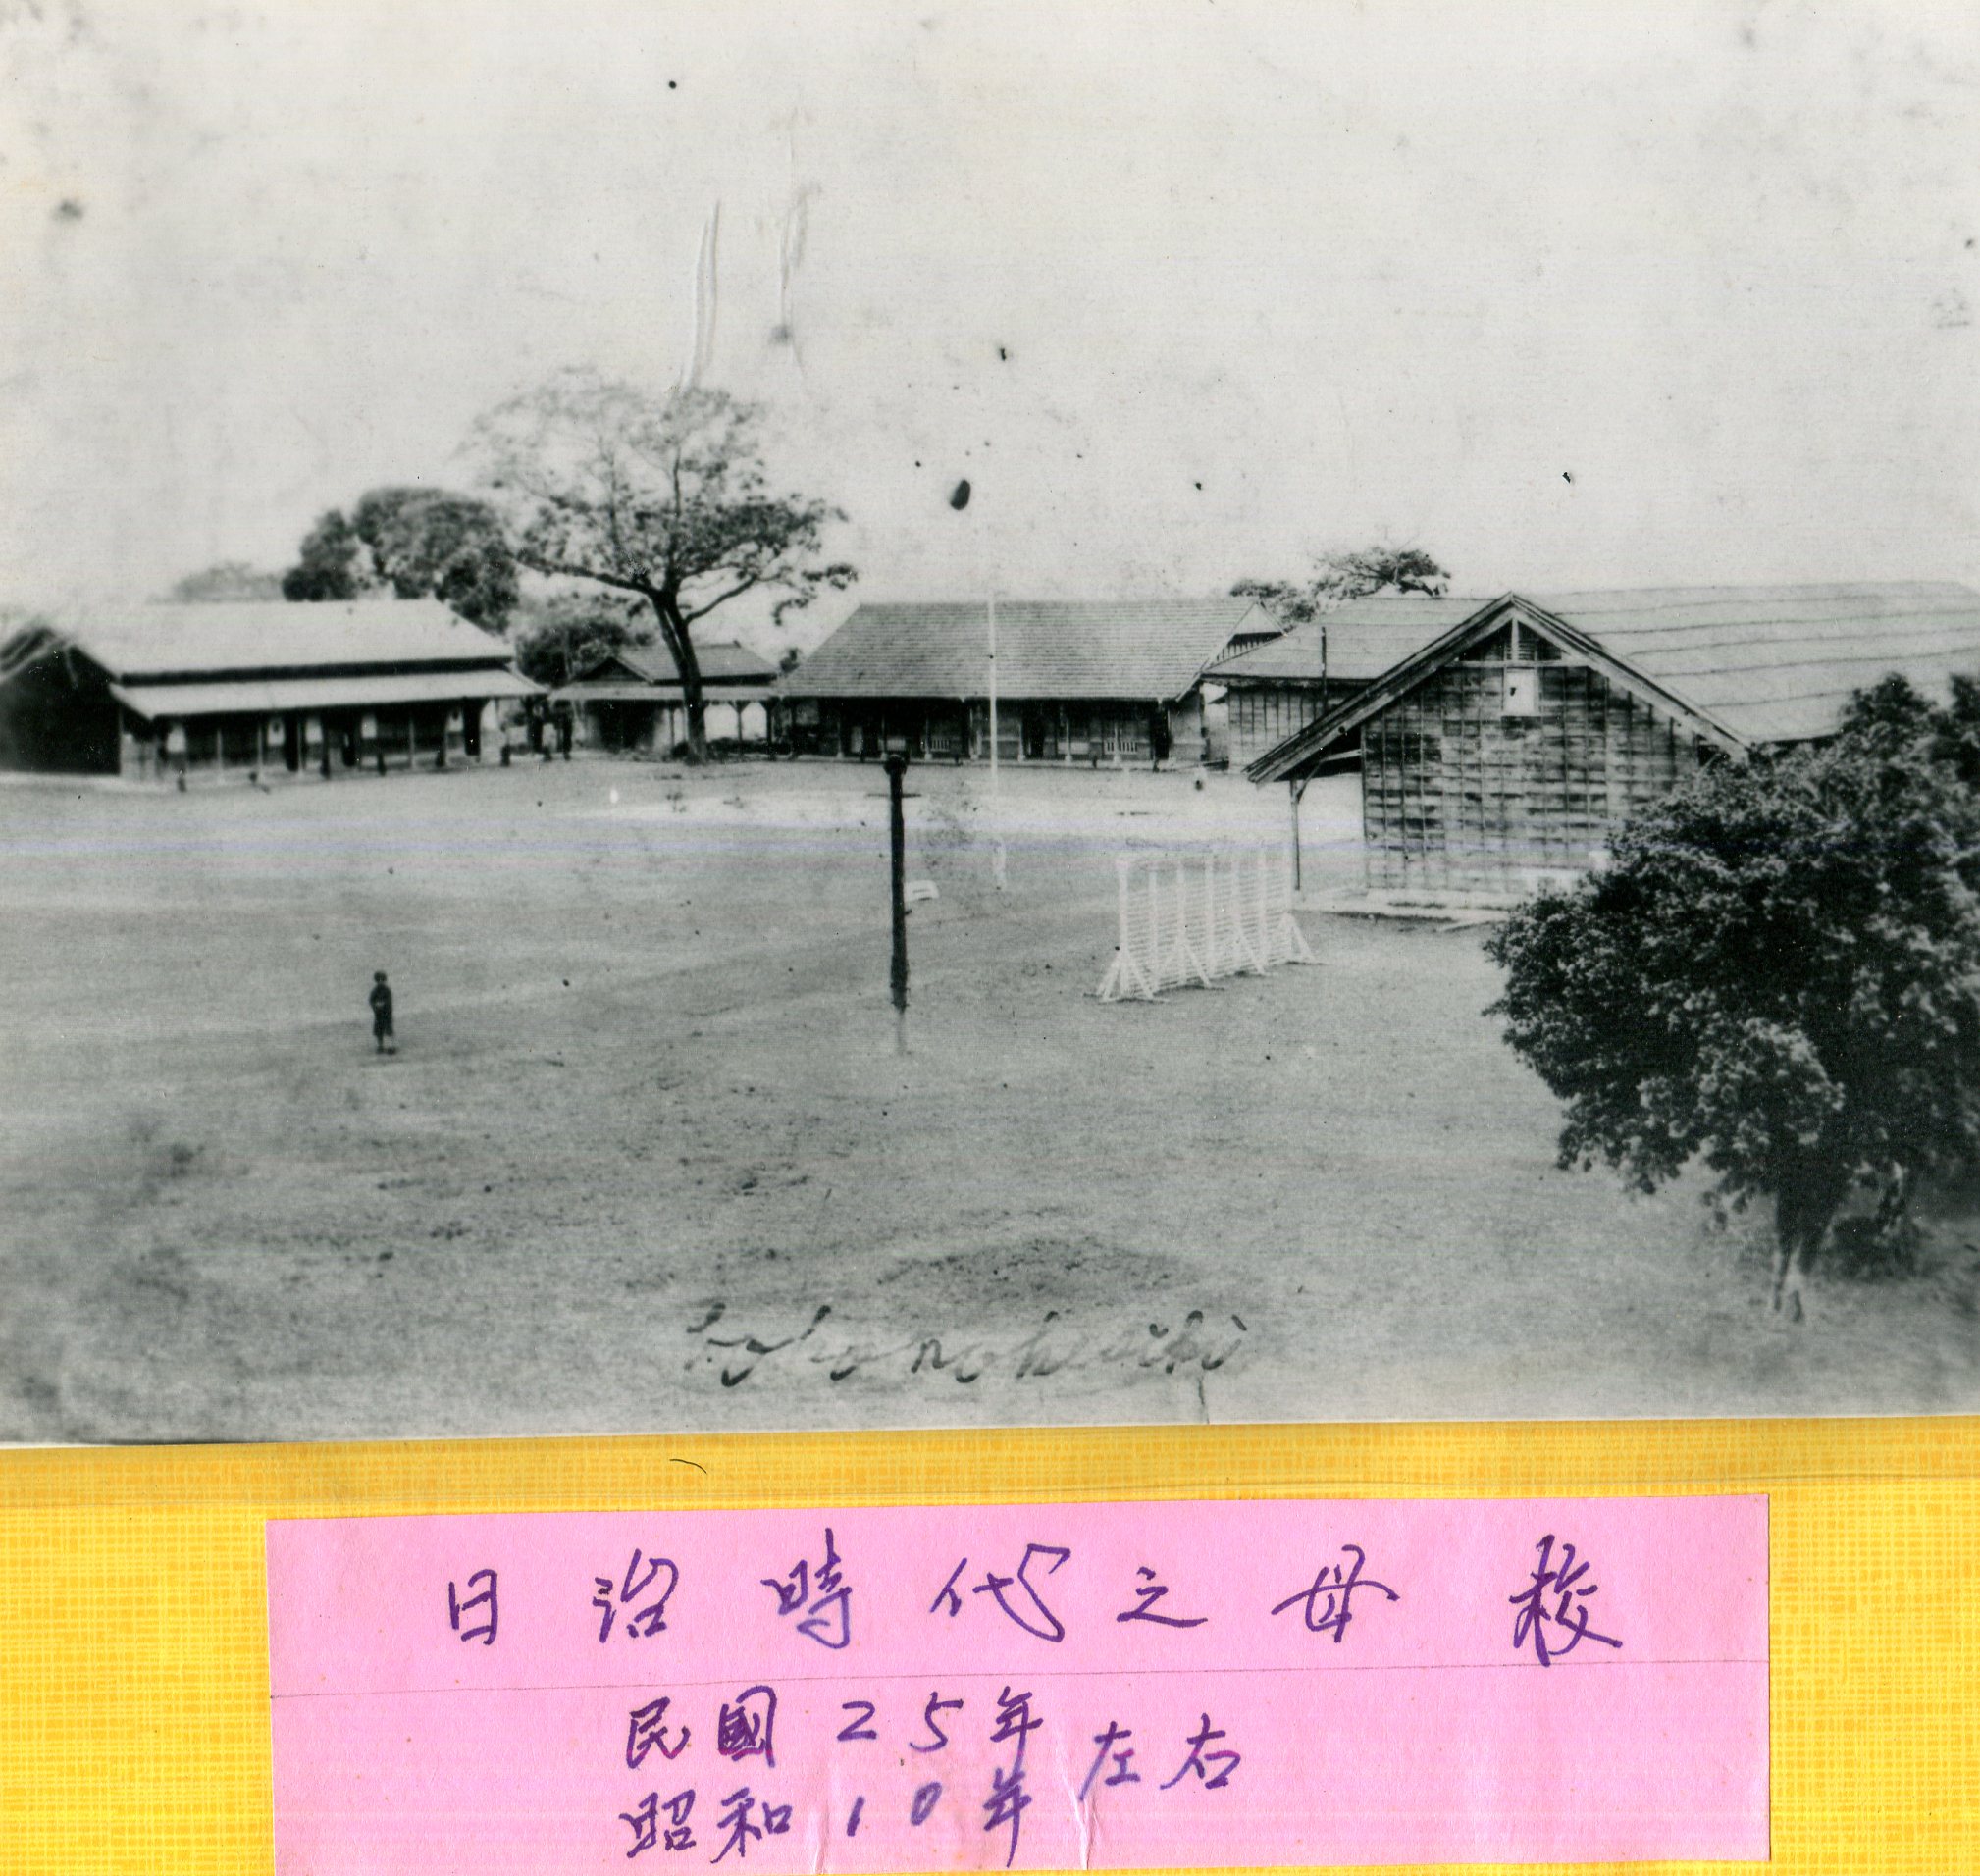 日治時代之母校
民國25年
昭和10年左右